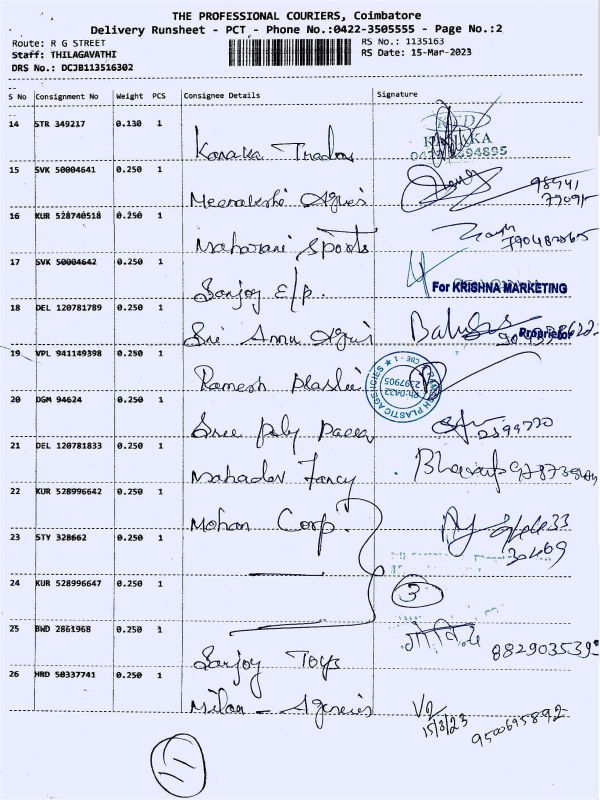 THE PROFESSIONAL COURIERS, Coimbatore
Delivery Runsheet - PCT - Phone No.:0422-3505555 - Page No.:2
Route: R G STREET
RS No.: 1135163
Staff: THILAGAVATHI
RS Date: 15-Mar-2023
DRS No.: DCJB113516302
S No Consignment No Weight PCS Consignee Details Signature
14 STR 349217 0.130 1 Kanaka Traders
15 SVK 50004641 0.250 1 Meenakshi Agnis
16 KUR 528740518 0.250 1 Maharani Sports
17 SVK 50004642 0.250 1 Sanjoy E/p.
For KRISHNA MARKETING
Proprietor
18 DEL 120781789 0.250 1 Sri Annu Agnis
19 VPL 941149398 0.250 1 Ramesh Plastic
RAMESH PLASTIC AGENCIES ★ CBE - 1 ★
Ph:0422
2397905
20 DGM 94624 0.250 1 Sree Poly Pacca
21 DEL 120781833 0.250 1 Mahadev Fancy
22 KUR 528996642 0.250 1 Mohan Corp.
23 STY 328662 0.250 1
30469
24 KUR 528996647 0.250 1
3
25 BWD 2861968 0.250 1 Sanjoy Toys
गोविंद 882903539
26 HRD 50337741 0.250 1 Milan - Agencies
15/3/23
9500695892